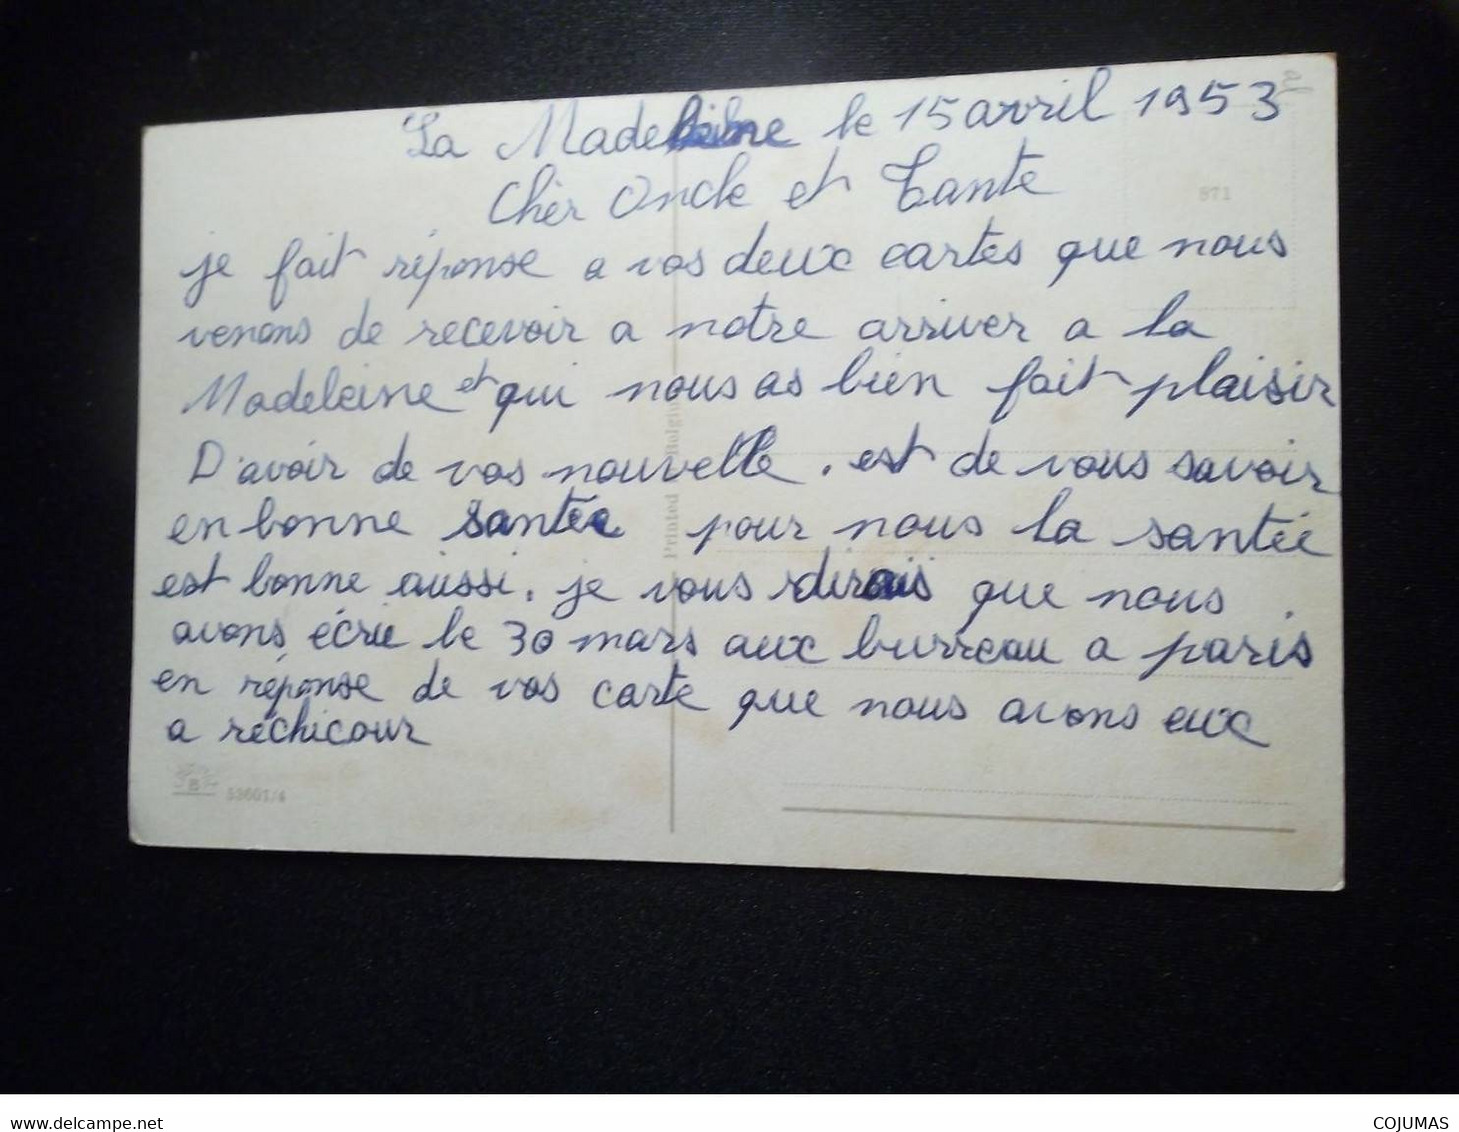 La Madeleine le 15 avril 1953
Cher Oncle et Tante
871
je fait réponse a vos deux cartes que nous
venons de recevoir a notre arriver a la
Madeleine et qui nous as bien fait plaisir
D'avoir de vos nouvelle. est de vous savoir
en bonne santée pour nous la santée
est bonne aussi. je vous dirais que nous
avons écrie le 30 mars aux burreau a paris
en réponse de vos carte que nous avons eux
a réchicour
Printed Belgiu
B 53601/4
delcampe.net
COJUMAS